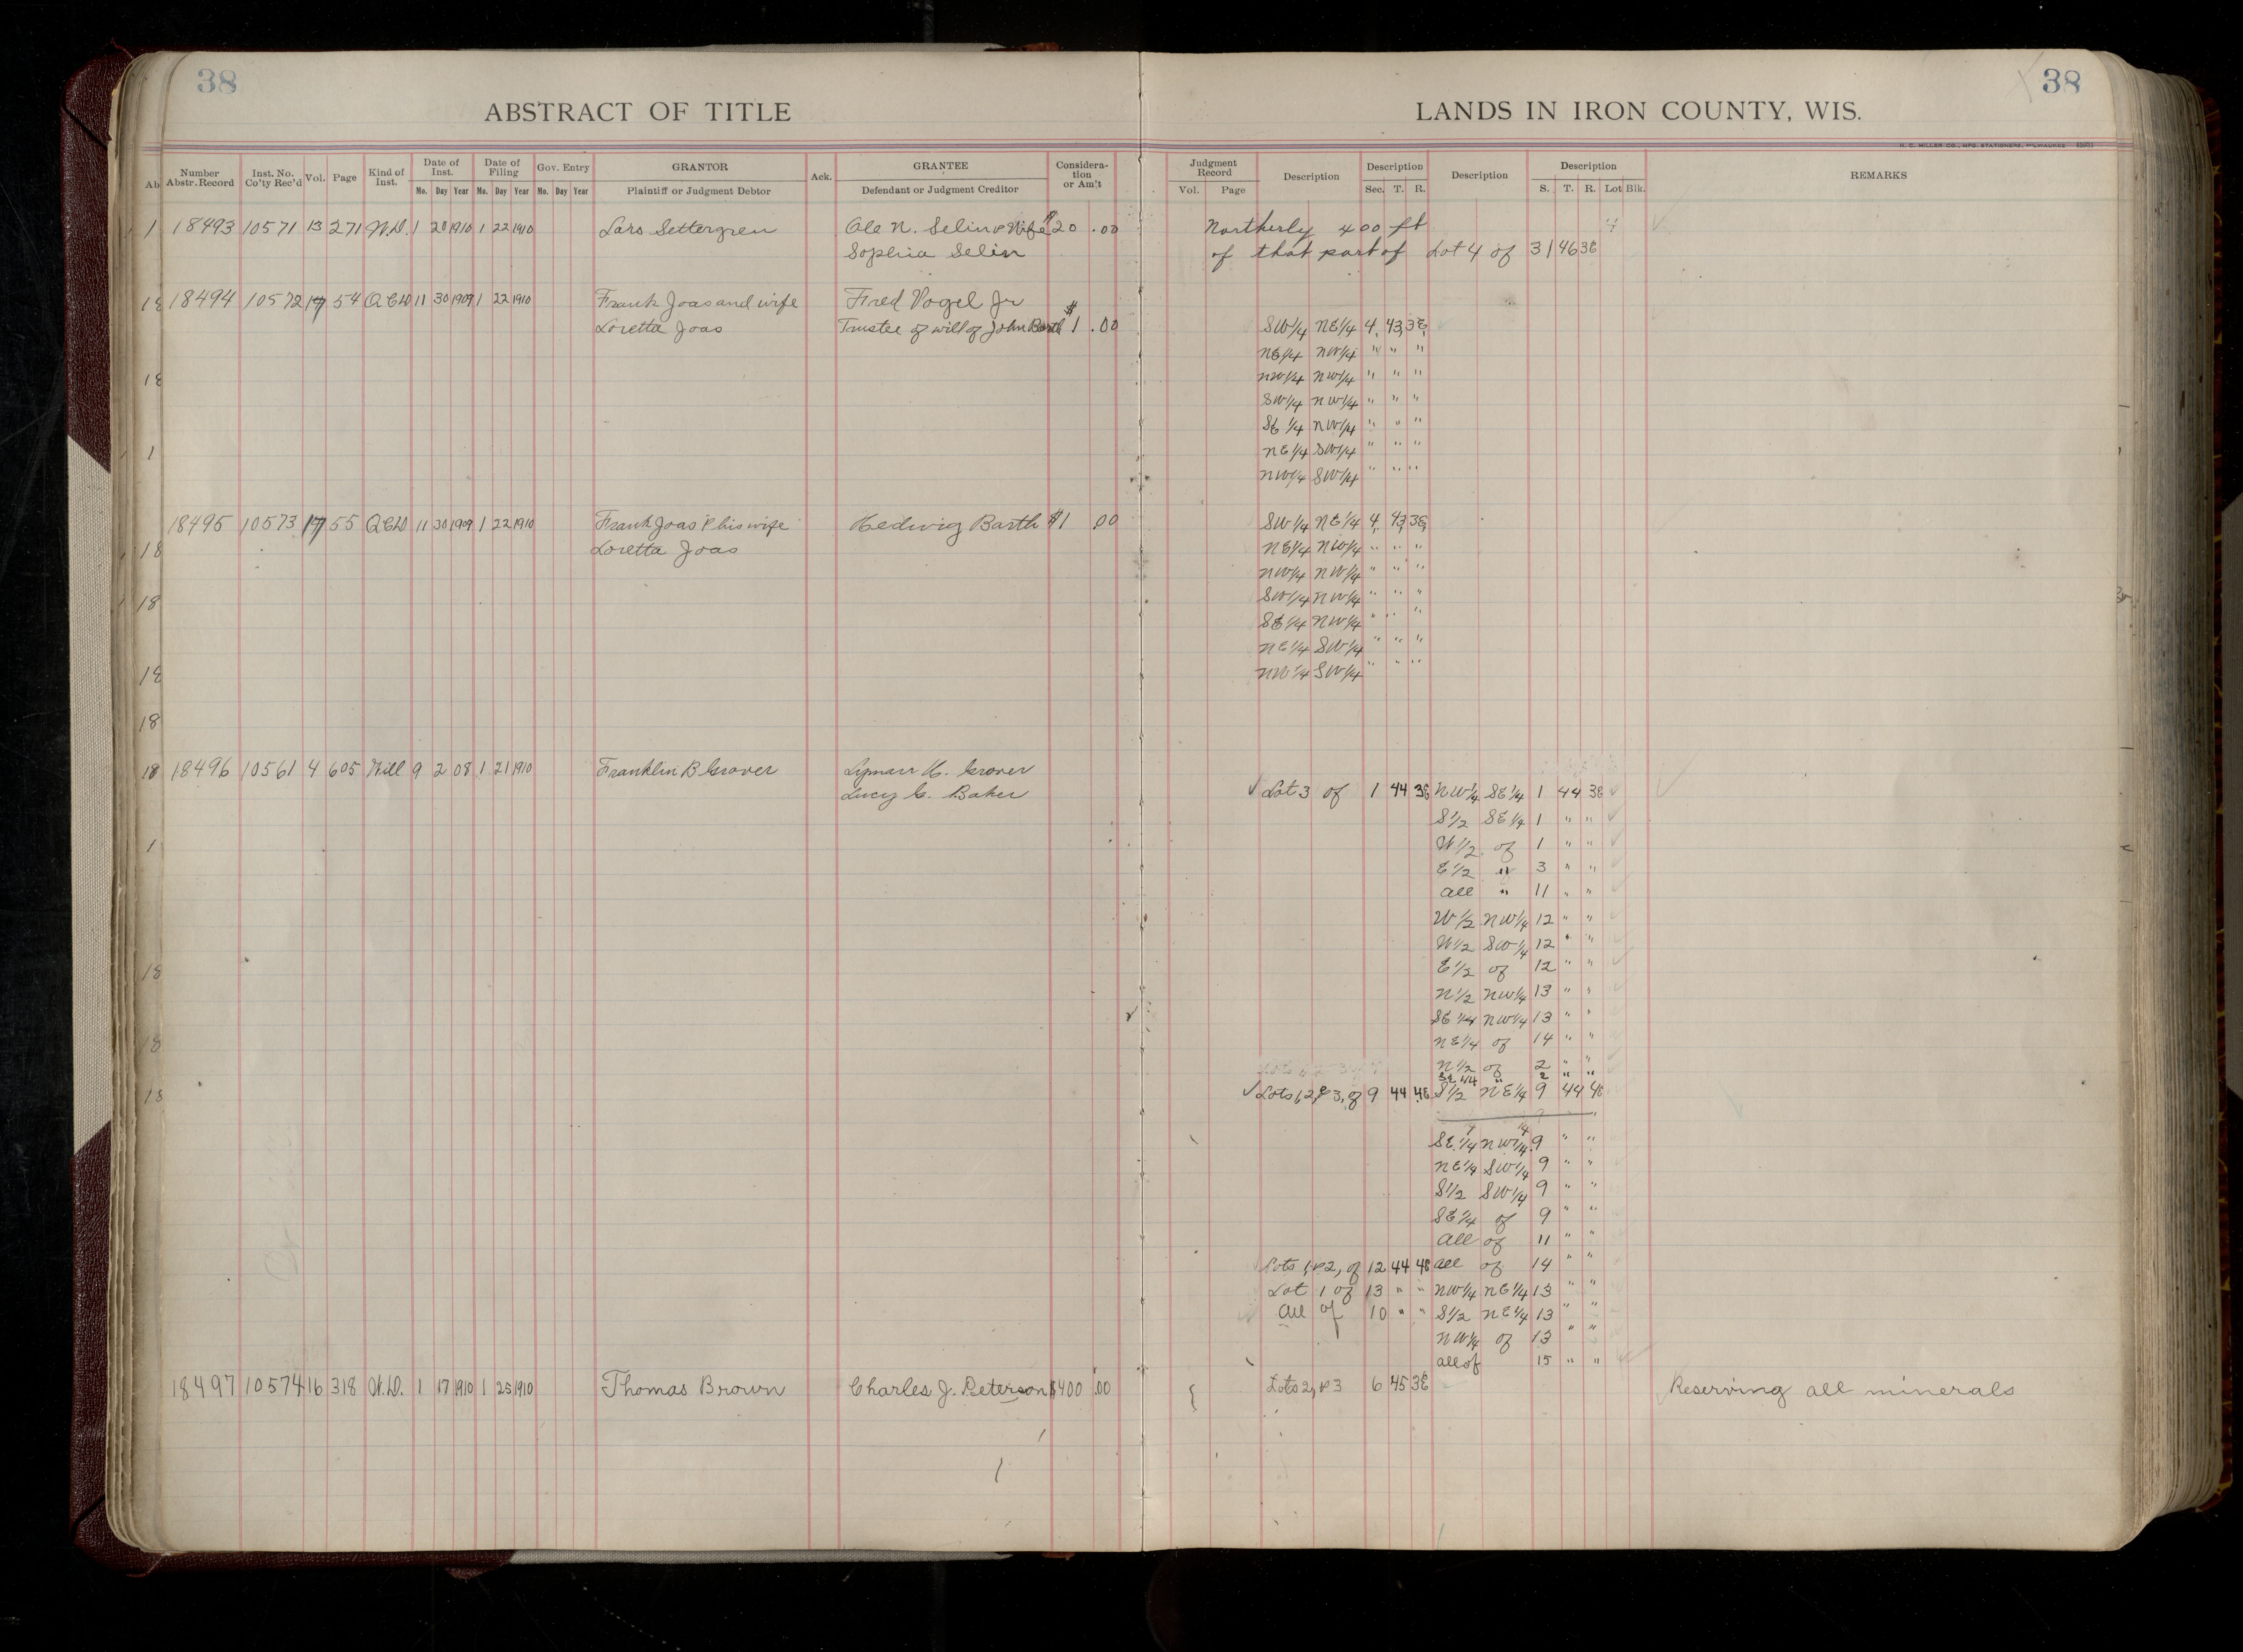 38
38
ABSTRACT OF TITLE
LANDS IN IRON COUNTY, WIS.
H. C. MILLER CO., MFG. STATIONERS, MILWAUKEE
Ab Number Abstr. Record Inst. No. Co'ty Rec'd Vol. Page Kind of Inst. Date of Inst. Mo. Day Year Date of Filing Mo. Day Year Gov. Entry Mo. Day Year GRANTOR Plaintiff or Judgment Debtor Ack. GRANTEE Defendant or Judgment Creditor Consideration or Am't
Judgment Record Vol. Page Description Description Sec. T. R. Description Description S. T. R. Lot Blk. REMARKS
18493 10571 13 271 W.D. 1 20 1910 1 22 1910 Lars Settergren Ole N. Selin & Wife $20 .00 Northerly 400 ft 4
Sophia Selin of that part of Lot 4 of 31 46 3E
18494 10572 17 54 QCD 11 30 1909 1 22 1910 Frank Joas and wife Fred Vogel Jr
Loretta Joas Trustee of will of John Barth $1 .00 SW1/4 NE1/4 4, 43, 3E,
NE1/4 NW1/4 " " "
NW1/4 NW1/4 " " "
SW1/4 NW1/4 " " "
SE1/4 NW1/4 " " "
NE1/4 SW1/4 " " "
NW1/4 SW1/4 " " "
18495 10573 17 55 QCD 11 30 1909 1 22 1910 Frank Joas & his wife Hedwig Barth $1 .00 SW1/4 NE1/4 4, 43, 3E,
Loretta Joas NE1/4 NW1/4 " " "
NW1/4 NW1/4 " " "
SW1/4 NW1/4 " " "
SE1/4 NW1/4 " " "
NE1/4 SW1/4 " " "
NW1/4 SW1/4 " " "
18496 10561 4 605 Will 9 2 08 1 21 1910 Franklin B Grover Lyman H. Grover
Lucy G. Baker Lot 3 of 1 44 3E NW1/4 SE1/4 1 44 3E
S1/2 SE1/4 1 " "
W1/2 of 1 " "
E1/2 " 3 " "
all " 11 " "
W1/2 NW1/4 12 " "
W1/2 SW1/4 12 " "
E1/2 of 12 " "
N1/2 NW1/4 13 " "
SE1/4 NW1/4 13 " "
NE1/4 of 14 " "
N1/2 of 2 " "
SE 1/4 " 2 " "
Lots 1, 2, & 3, of 9 44 4E S1/2 NE1/4 9 44 4E
SE1/4 NW1/4 9 " "
NE1/4 SW1/4 9 " "
S1/2 SW1/4 9 " "
SE1/4 of 9 " "
All of 11 " "
Lots 1, & 2, of 12 44 4E all of 14 " "
Lot 1 of 13 " " NW1/4 NE1/4 13 " "
All of 10 " " S1/2 NE1/4 13 " "
NW1/4 of 13 " "
all of 15 " "
18497 10574 16 318 W.D. 1 17 1910 1 25 1910 Thomas Brown Charles J. Peterson $400 .00 Lots 2, & 3 6 45 3E Reserving all minerals